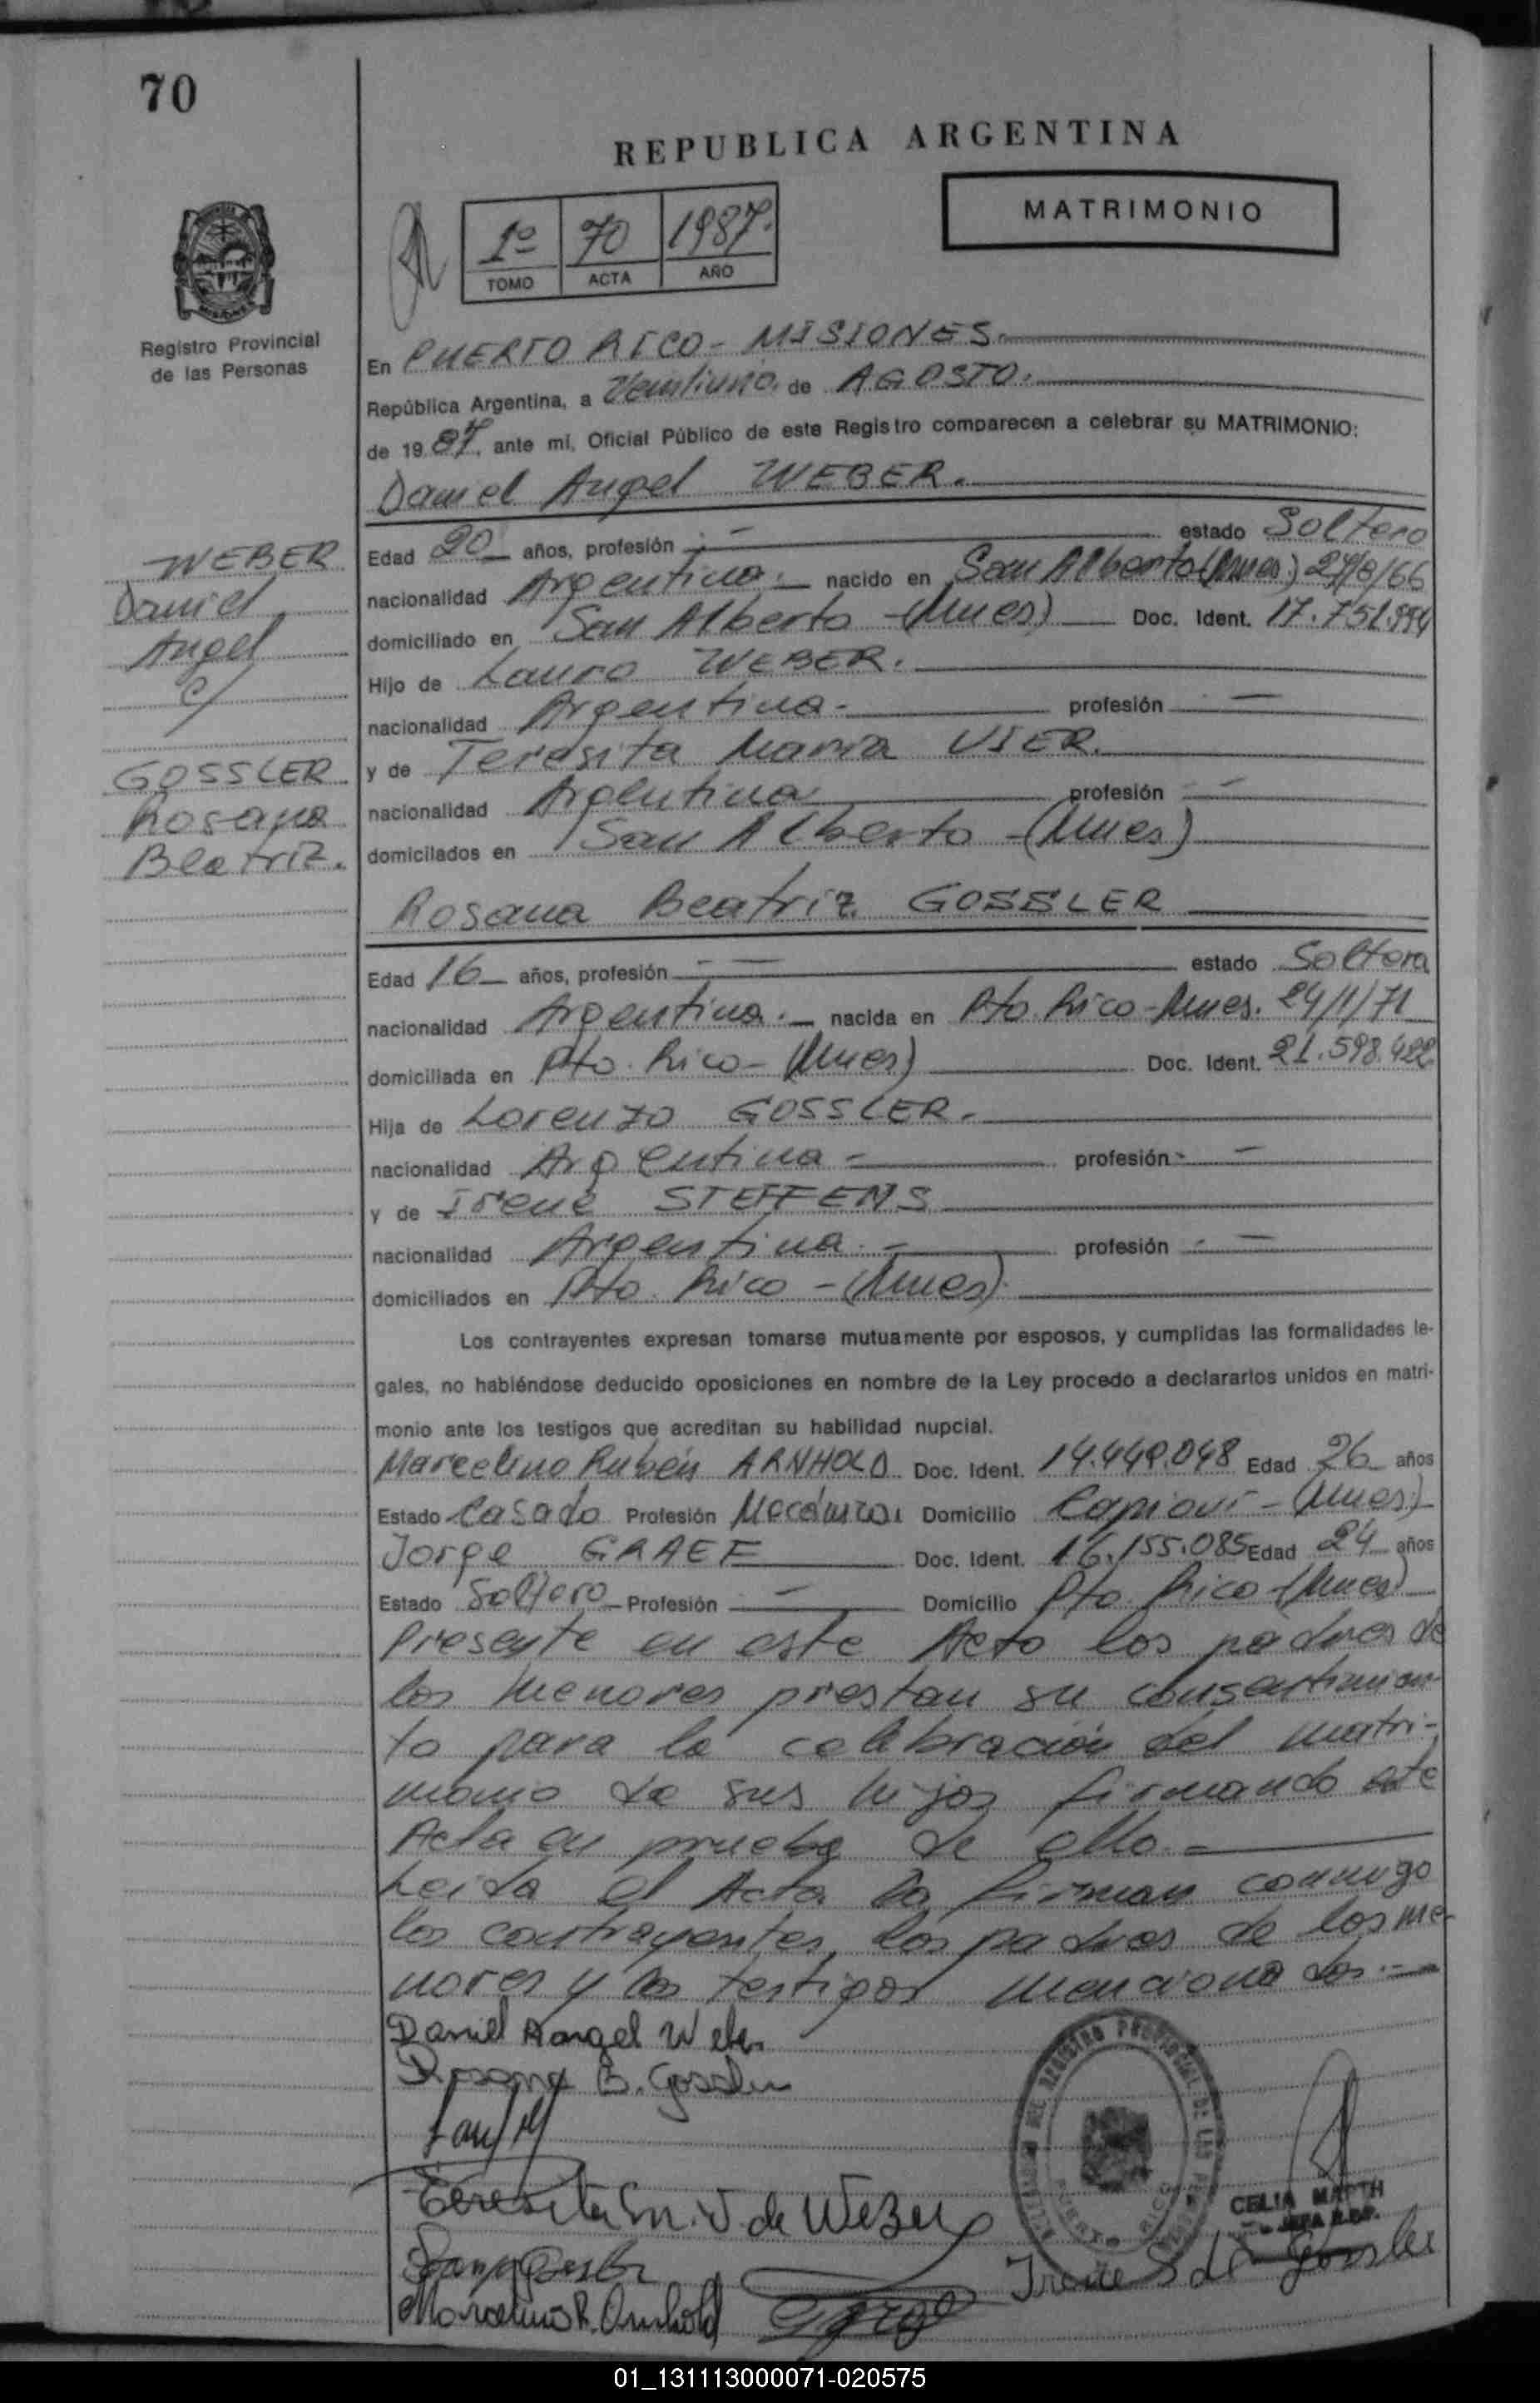 70
REPUBLICA ARGENTINA
MATRIMONIO
1º 70 1987.
TOMO ACTA AÑO
Registro Provincial
de las Personas
En PUERTO RICO - MISIONES.
República Argentina, a Veintiuno. de AGOSTO.
de 19 87, ante mi, Oficial Público de este Registro comparecen a celebrar su MATRIMONIO:
Daniel Angel WEBER.
WEBER
Daniel
Angel
c/
GOSSLER
Rosana
Beatriz.
Edad 20 años, profesión - estado Soltero
nacionalidad Argentina. nacido en San Alberto (Mnes.) 27/8/66
domiciliado en San Alberto - (Mnes) Doc. Ident. 17.751.994
Hijo de Lauro WEBER.
nacionalidad Argentina. profesión -
y de Teresita Maria VIER.
nacionalidad Argentina profesión -
domicilados en San Alberto - (Mnes)
Rosana Beatriz GOSSLER
Edad 16 años, profesión - estado Soltera
nacionalidad Argentina. nacida en Pto. Rico - Mnes. 24/1/71
domiciliada en Pto. Rico - (Mnes) Doc. Ident. 21.598.422
Hija de Lorenzo GOSSLER.
nacionalidad Argentina - profesión -
y de Irene STEFFENS
nacionalidad Argentina. - profesión -
domiciliados en Pto. Rico - (Mnes).
Los contrayentes expresan tomarse mutuamente por esposos, y cumplidas las formalidades le-
gales, no habiéndose deducido oposiciones en nombre de la Ley procedo a declararlos unidos en matri-
monio ante los testigos que acreditan su habilidad nupcial.
Marcelino Rubén ARNHOLD Doc. Ident. 14.449.048 Edad 26 años
Estado Casado Profesión Mecánico Domicilio Capiovi - (Mnes.)
Jorge GRAEF Doc. Ident. 16.155.085 Edad 24 años
Estado Soltero Profesión - Domicilio Pto. Rico - (Mnes)
Presente en este Acto los padres de
los menores prestan su consentimien-
to para la celebración del matri-
monio de sus hijos firmando este
Acta en prueba de ello. -
Leída el Acta la firman conmigo
los contrayentes, los padres de los me-
nores y los testigos mencionados. -
Daniel Angel Weber
Rosana B. Gossler
Teresita M. V. de Weber
Irene S de Gossler
Marcelino R. Arnhold
REGISTRO PROVINCIAL DE LAS
PUERTO RICO
CELIA
JEFA R.P.P.
01_131113000071-020575